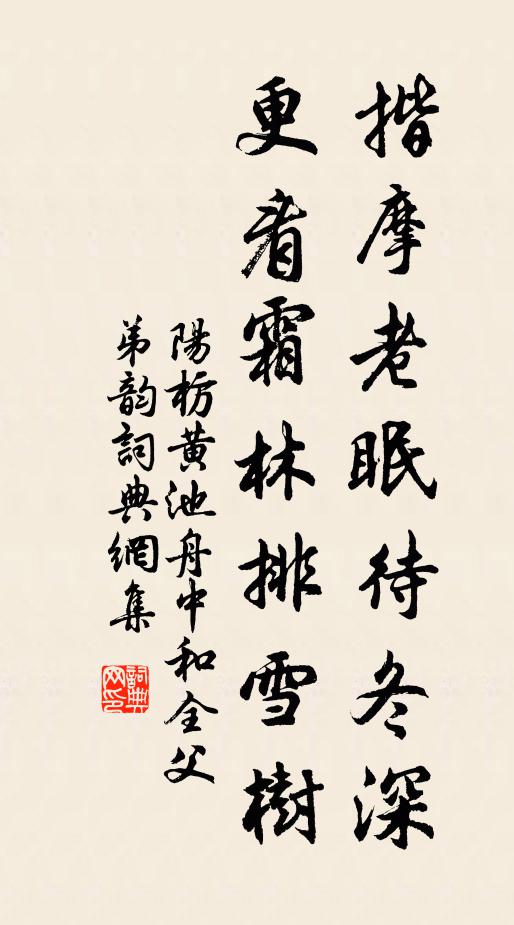 揩摩老眠待冬深
更看霜林排雪樹
陽枋黃池舟中和全父
弟韵詞典網集
詞典网印